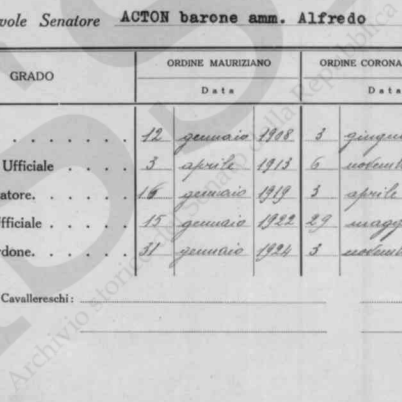 vole Senatore ACTON barone amm. Alfredo
GRADO ORDINE MAURIZIANO ORDINE CORONA
Data Data
12 gennaio 1908 3 giugno
Ufficiale 3 aprile 1913 6 novemb
atore. 16 gennaio 1919 3 aprile
fficiale 15 gennaio 1922 29 magg
rdone. 31 gennaio 1924 3 novemb
Cavallereschi:
Archivio storico del Senato della Repubblica